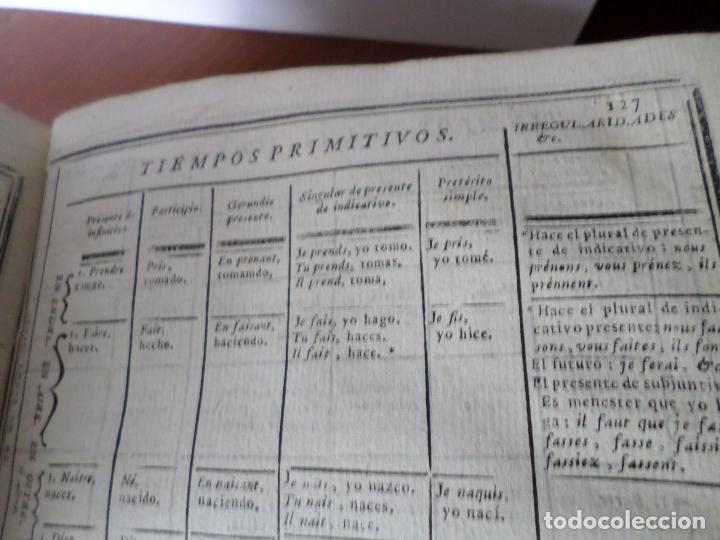 127
TIEMPOS PRIMITIVOS.
IRREGULARIDADES
&c.
Presente de
infinitivo
Participio.
Gerundio
presente.
Singular de presente
de indicativo.
Pretérito
simple.
1. Prendre
tomar.
Pris,
tomado.
En prénant,
tomando.
Je prends, yo tomo.
Tu prends, tomas.
Il prend, toma,
Je pris,
yo tomé.
*Hace el plural de presen-
te de indicativo: nous
prénons, vous prénez, ils
prénnent.
1. Faire,
hacer.
Fait,
hecho.
En faisant,
haciendo.
Je fais, yo hago.
Tu fais, haces.
Il fait, hace. *
Je fis,
yo hice.
*Hace el plural de indi-
cativo presente: nous fai
sons, vous faites, ils fon
El futuro: je ferai, &c
El presente de subjunti
Es menester que yo
ga: il faut que je fa
fasses, fasse, faissi
fassiez, fassent.
1. Naitre,
naces.
Né,
nacido.
En naisant,
naciendo.
Je nais, yo nazco.
Tu nais, naces.
Il nait, nace.
Je naquis,
yo nací.
EN AIRE. EN
todocoleccion.net